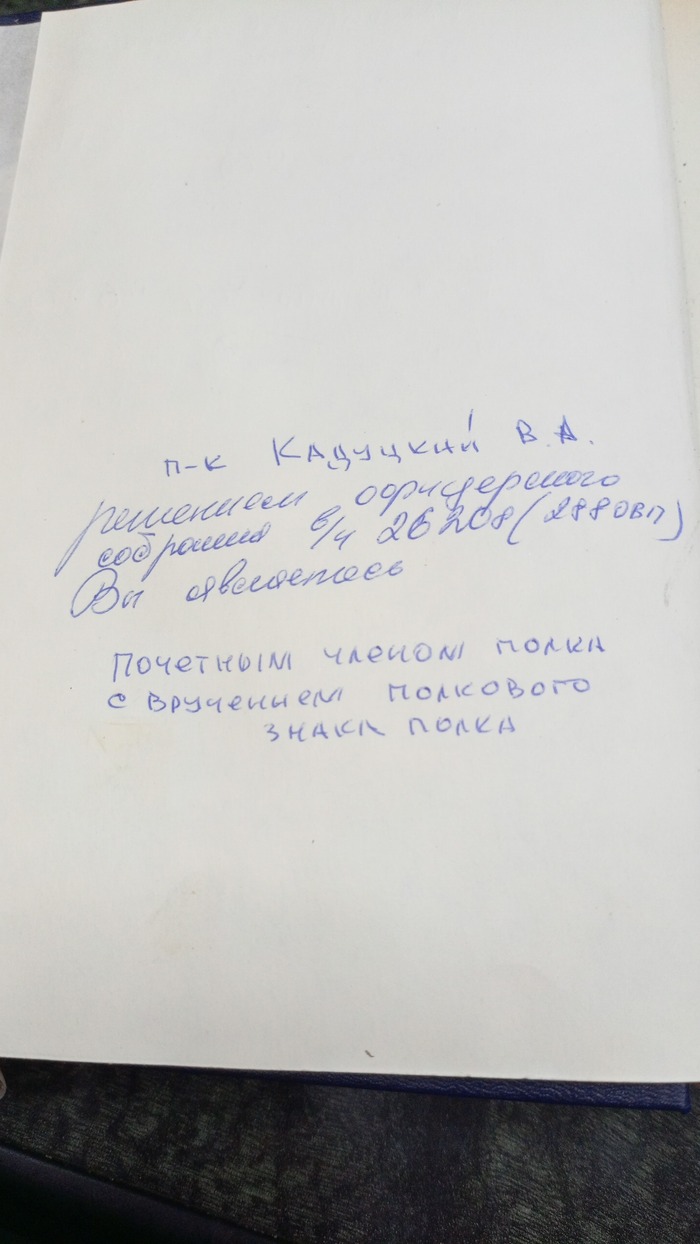 п-к Кадуцкий В.А.
решением офицерского
собрания в/ч 26208 (288 ОВП)
Вы являетесь
Почетным членом полка
с вручением полкового
знака полка